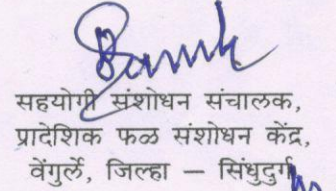 सहयोगी संशोधन संचालक,
प्रादेशिक फळ संशोधन केंद्र,
वेंगुर्ले, जिल्हा – सिंधुदुर्ग